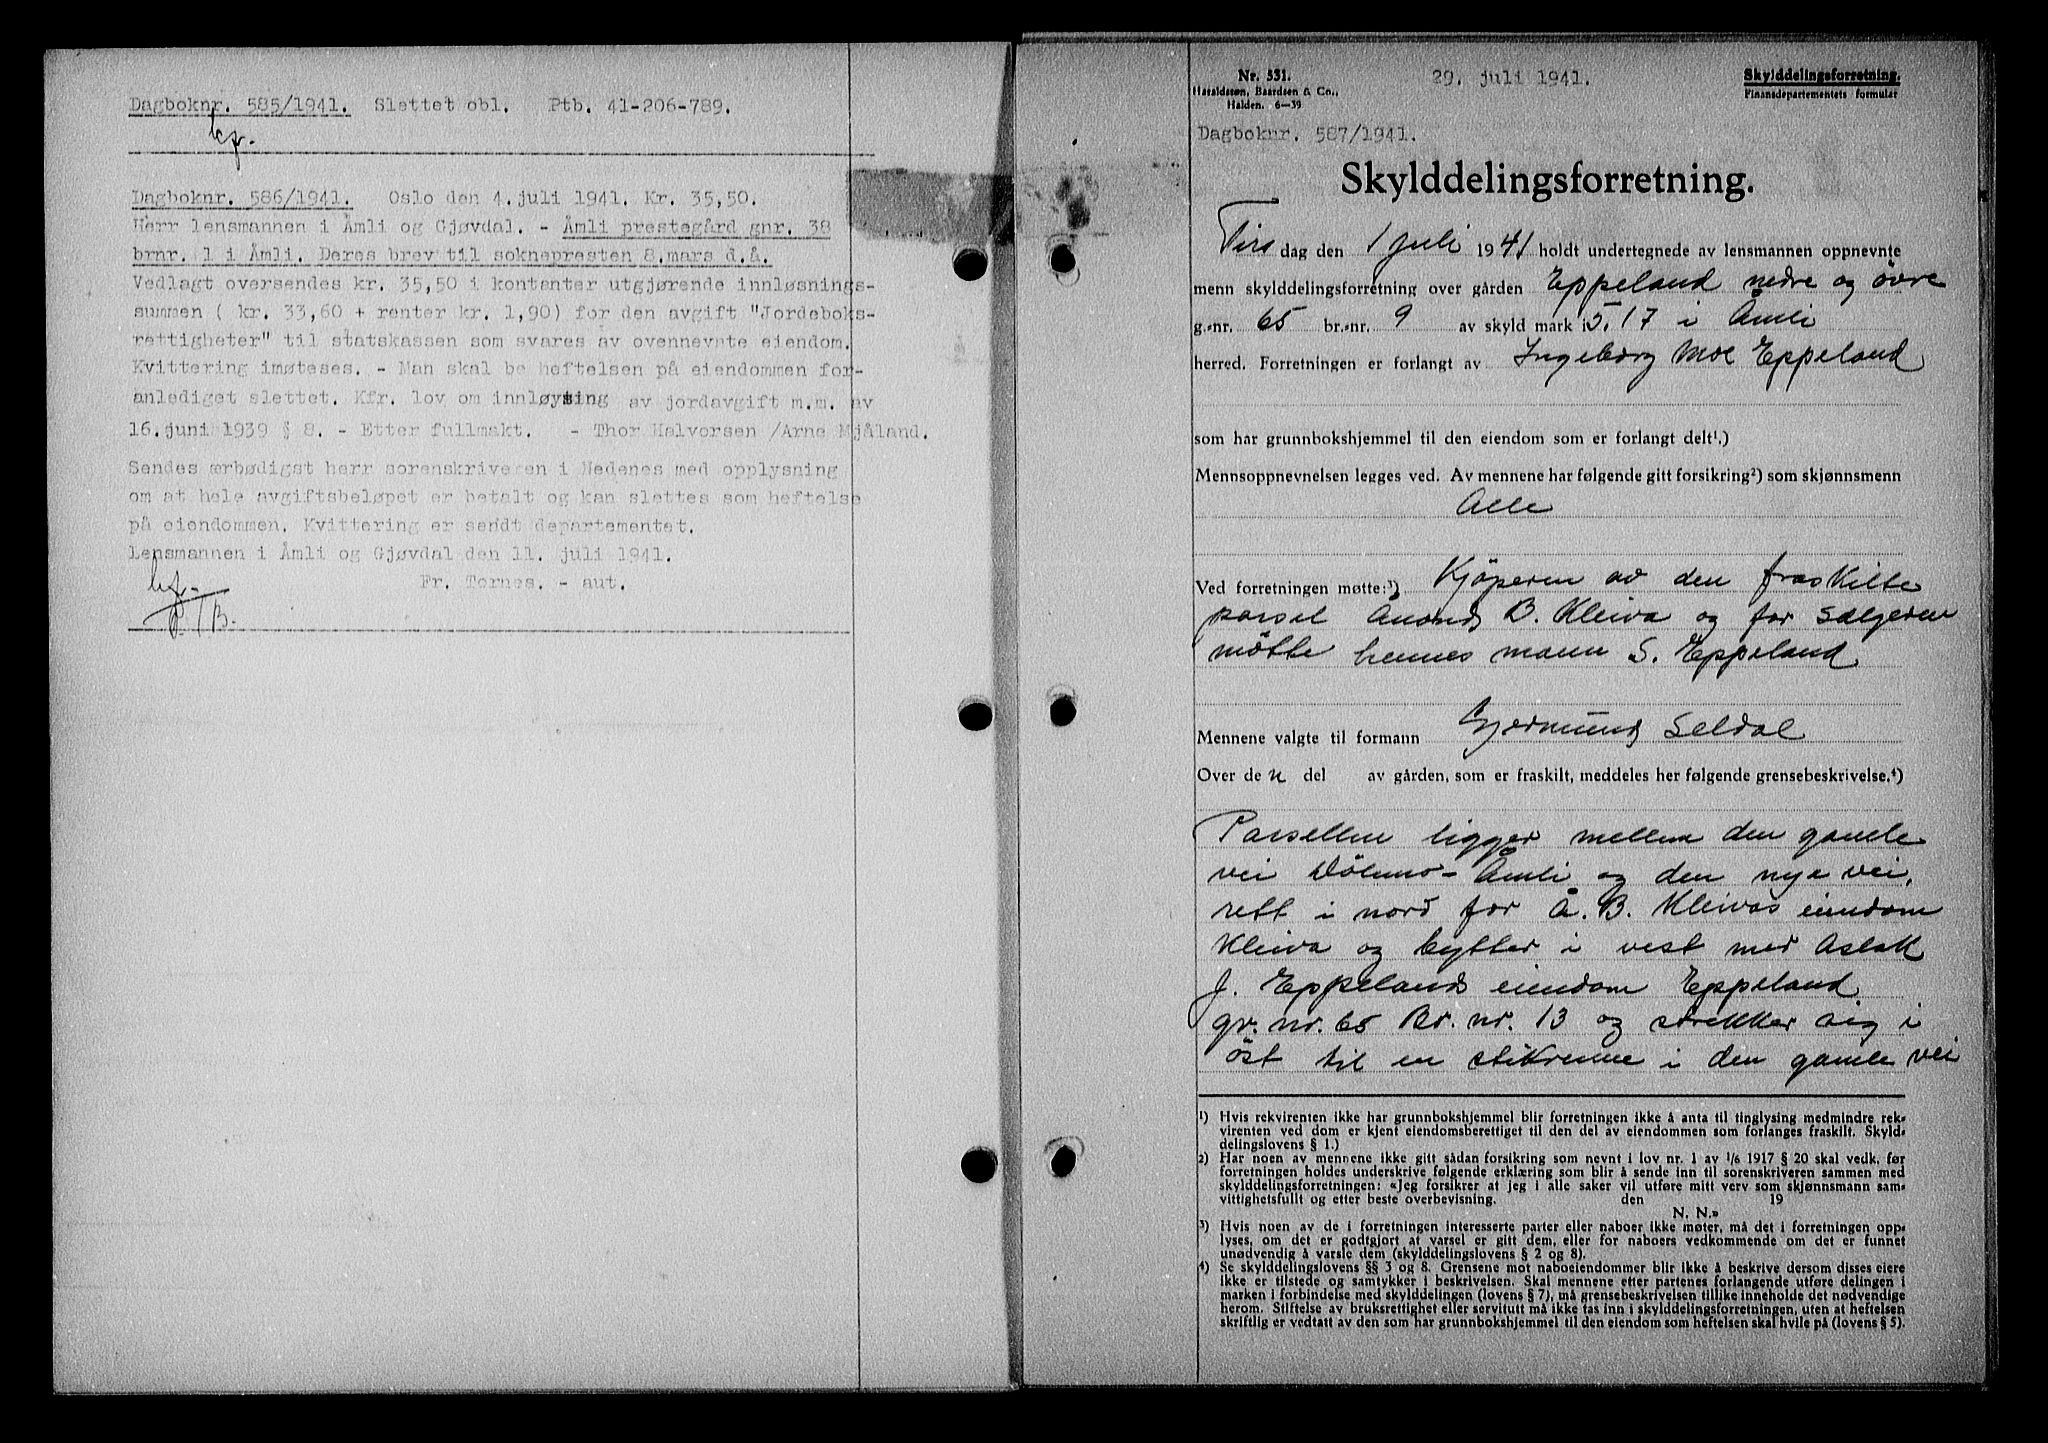 Dagboknr. 585/1941. Slettet obl. Ptb. 41-206-789.
Dagboknr. 586/1941. Oslo den 4. juli 1941. Kr. 35,50.
Herr lensmannen i Åmli og Gjøvdal. - Åmli prestegård gnr. 38
brnr. 1 i Åmli. Deres brev til soknepresten 8. mars d.å.
Vedlagt oversendes kr. 35,50 i kontanter utgjørende innløsnings-
summen ( kr. 33,60 + renter kr. 1,90) for den avgift "Jordeboks-
rettigheter" til statskassen som svares av ovennevnte eiendom.
Kvittering imøteses. - Man skal be heftelsen på eiendommen for-
anlediget slettet. Kfr. lov om innløysing av jordavgift m.m. av
16. juni 1939 § 8. - Etter fullmakt. - Thor Halvorsen /Arne Mjåland.
Sendes ærbødigst herr sorenskriveren i Nedenes med opplysning
om at hele avgiftsbeløpet er betalt og kan slettes som heftelse
på eiendommen. Kvittering er sendt departementet.
Lensmannen i Åmli og Gjøvdal den 11. juli 1941.
Fr. Ternes. - aut.
Nr. 531.
Haraldssøn, Baardsen & Co.,
Halden. 6-39
29. juli 1941.
Skylddelingsforretning.
Finansdepartementets formular
Dagboknr. 587/1941.
Skylddelingsforretning.
Tirs dag den 1 juli 1941 holdt undertegnede av lensmannen oppnevnte
menn skylddelingsforretning over gården Eppeland nedre og övre
g.-nr. 65 br.-nr. 9 av skyld mark 5.17 i Åmli
herred. Forretningen er forlangt av Ingeborg Moe Eppeland
som har grunnbokshjemmel til den eiendom som er forlangt delt¹.)
Mennsoppnevnelsen legges ved. Av mennene har følgende gitt forsikring²) som skjønnsmenn
Alle
Ved forretningen møtte:³) Kjöperen av den fraskilte
parsel Ånond B. Kleiva og for Sælgeren
mötte hennes mann S. Eppeland
Mennene valgte til formann Gjermund Seldal
Over den del av gården, som er fraskilt, meddeles her følgende grensebeskrivelse.⁴)
Parsellen ligger mellem den gamle
vei Dölemo - Åmli og den nye vei,
rett i nord for Å. B. Kleivas eiendom
Kleiva og bytter i vest med Aslak
J. Eppelands eiendom Eppeland
gr. nr. 65 Br. nr. 13 og strekker sig i
öst til en stikrenne i den gamle vei
¹) Hvis rekvirenten ikke har grunnbokshjemmel blir forretningen ikke å anta til tinglysing medmindre rek-
virenten ved dom er kjent eiendomsberettiget til den del av eiendommen som forlanges fraskilt. Skyld-
delingslovens § 1.)
²) Har noen av mennene ikke gitt sådan forsikring som nevnt i lov nr. 1 av 1/6 1917 § 20 skal vedk, før
forretningen holdes underskrive følgende erklæring som blir å sende inn til sorenskriveren sammen med
skylddelingsforretningen: «Jeg forsikrer at jeg i alle saker vil utføre mitt verv som skjønnsmann sam-
vittighetsfullt og etter beste overbevisning. den 19
N. N.»
³) Hvis noen av de i forretningen interesserte parter eller naboer ikke møter, må det i forretningen opp-
lyses, om det er godtgjort at varsel er gitt dem, eller for naboers vedkommende om det er funnet
unødvendig å varsle dem (skylddelingslovens § 2 og 8).
⁴) Se skylddelingslovens §§ 3 og 8. Grensene mot naboeiendommer blir ikke å beskrive dersom disses eiere
ikke er tilstede og samtykker i beskrivelsen. Skal mennene etter partenes forlangende utføre delingen i
marken i forbindelse med skylddelingen (lovens § 7), må grensebeskrivelsen tillike inneholde det nødvendige
herom. Stiftelse av bruksrettighet eller servitutt må ikke tas inn i skylddelingsforretningen, uten at heftelsen
skriftlig er vedtatt av den som har grunnbokshjemmel til den eiendom som heftelsen skal hvile på (lovens § 5).